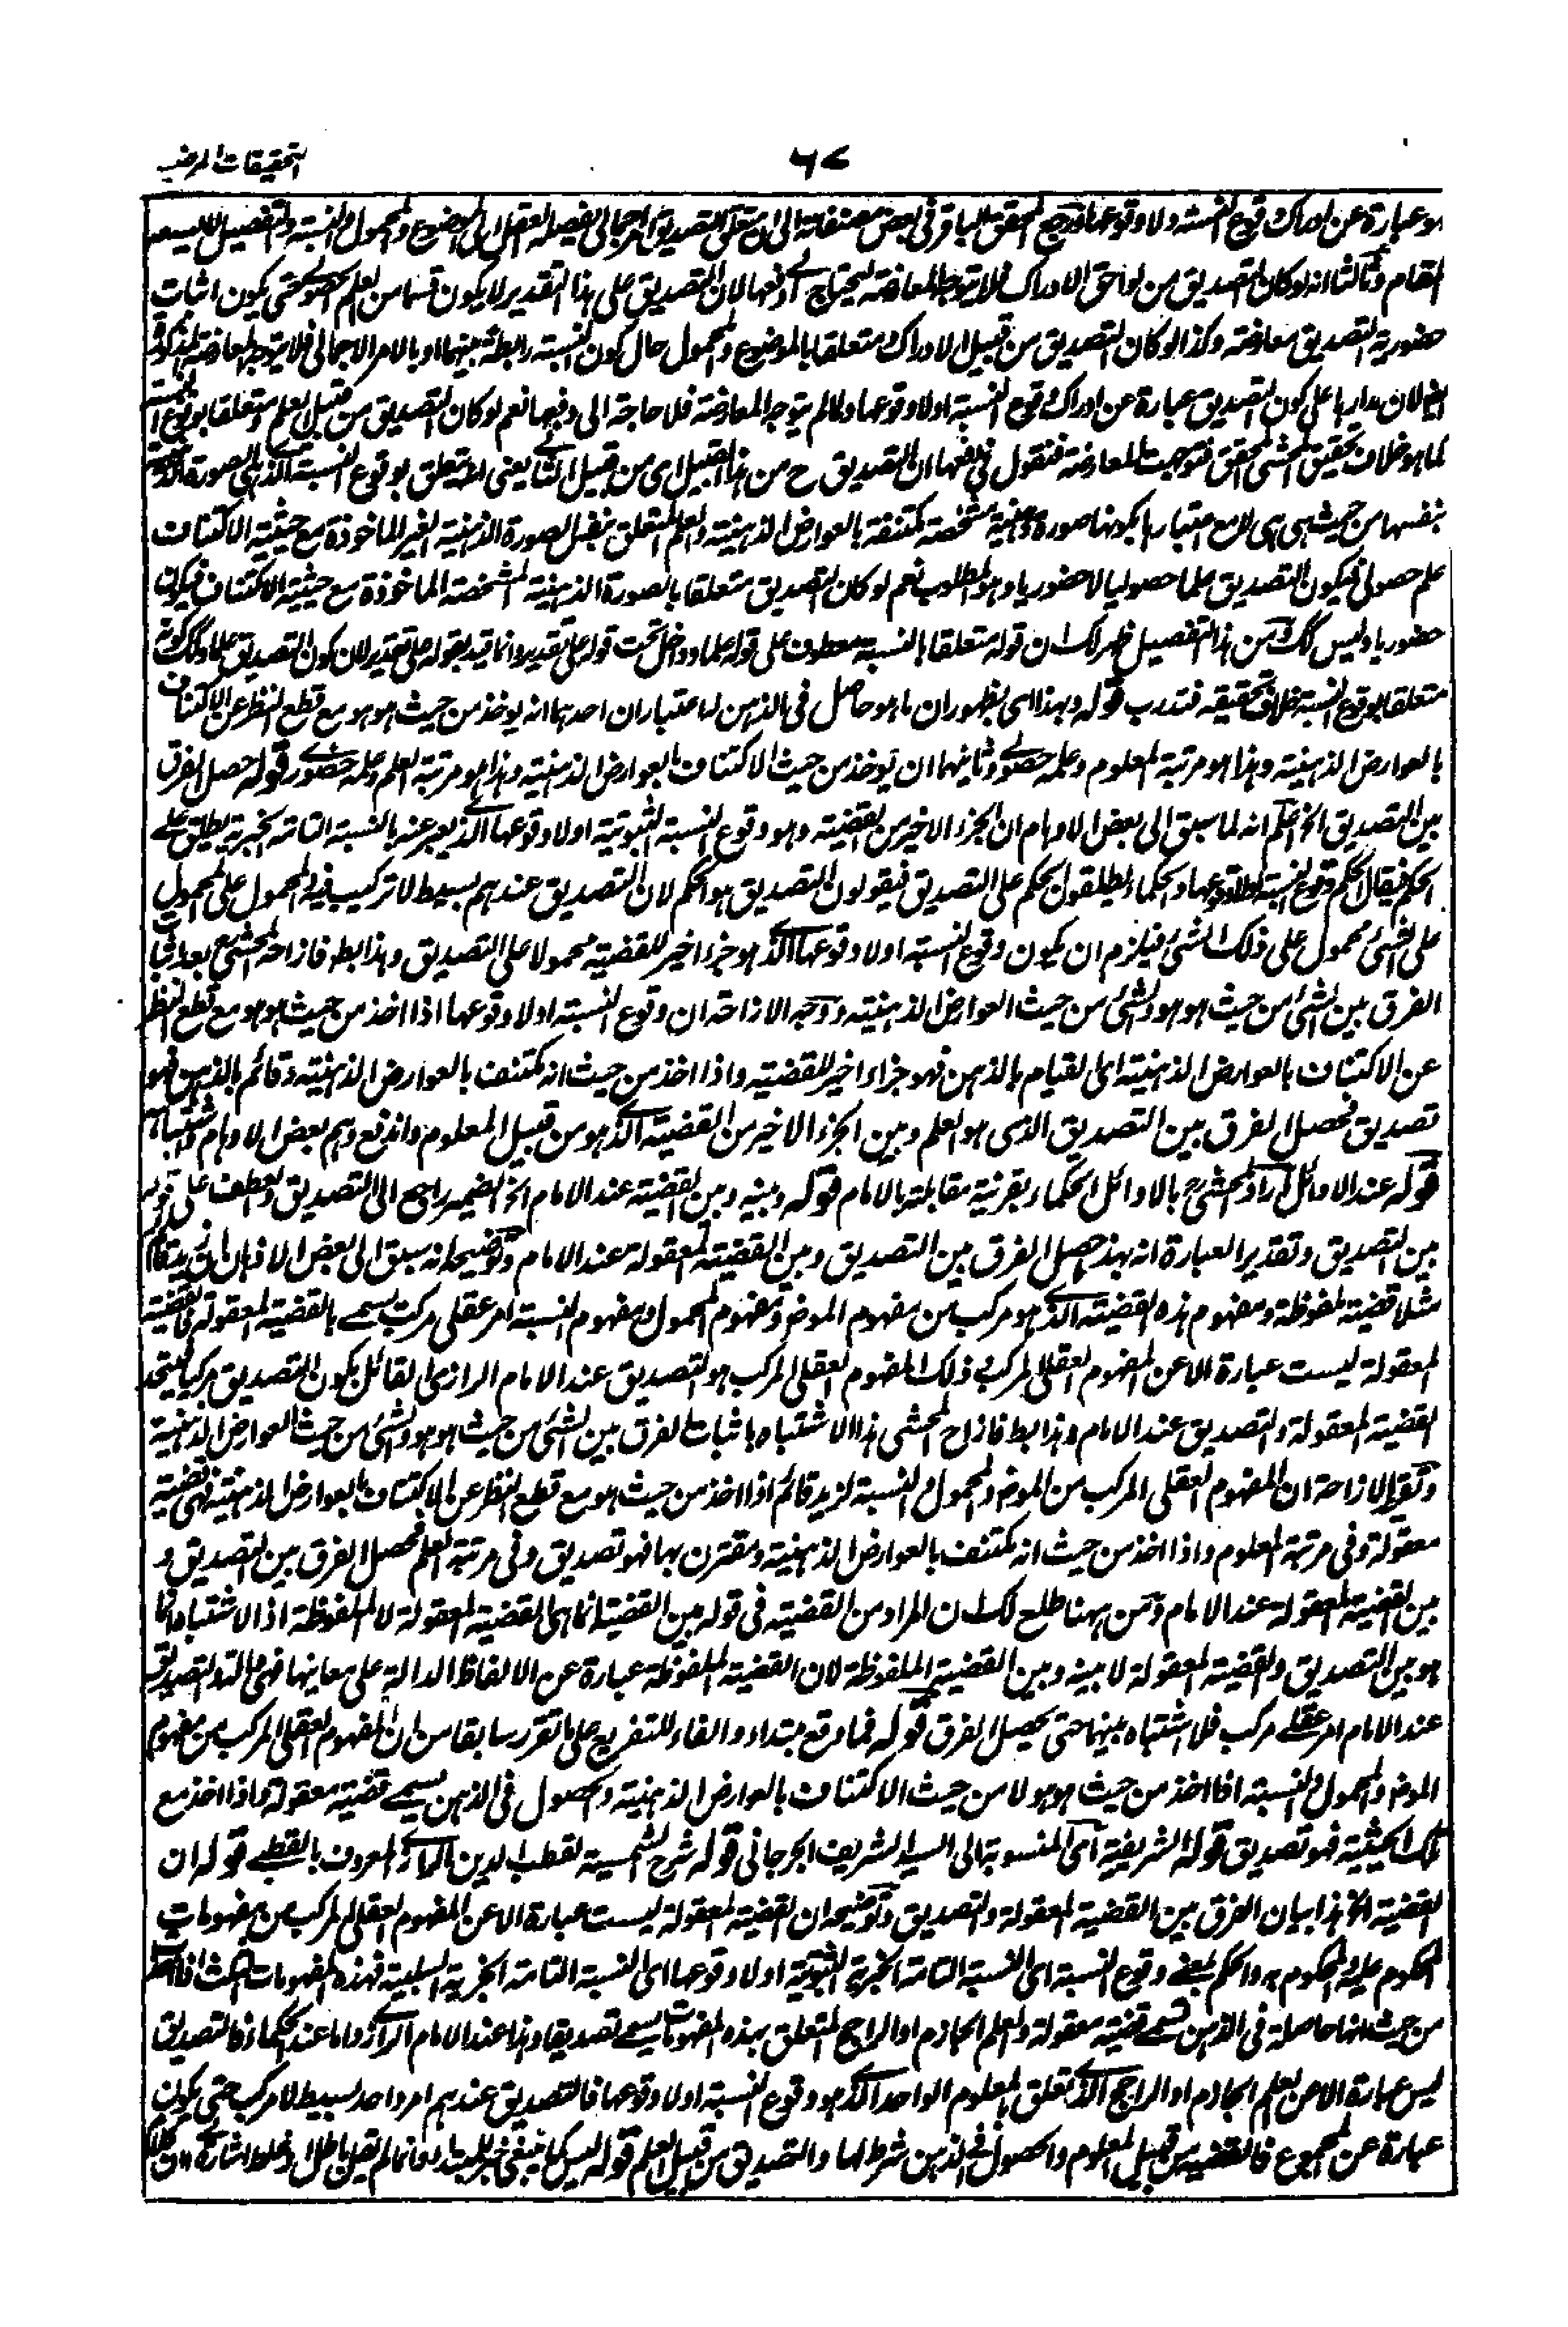 التحقيقات المرضيه
٦٧
هو عبارة عن ادراك وقوع النسبة ولا وقوعها ورجع المحقق الباقر فى بعض مصنفاته الى ان متعلق التصديق امر اجمالى يفصله العقل الى الموضوع والمحمول والنسبة والتفصيل لا يسعه
المقام وثالثا انه لو كان التصديق من لواحق الادراك فلا يتوجه المعارضة ليحتاج الى دفعها لان التصديق على هذا التقدير لا يكون قسما من العلم الحصولى حتى يكون اثبات
حضورية التصديق معارضة وكذا لو كان التصديق من قبيل الادراك متعلقا بالموضوع والمحمول حال كون النسبة رابطة بينهما او بالامر الاجمالى فلا يتوجه المعارضة المذكورة
ايضا لان مدارها على كون التصديق عبارة عن ادراك وقوع النسبة اولا وقوعها ولما لم يتوجه المعارضة فلا حاجة الى دفعها نعم لو كان التصديق من قبيل العلم ومتعلقا بوقوع النسبة
كما هو خلاف تحقيق المحشى المحقق فتوجهت المعارضة فنقول فى دفعها ان التصديق ح من هذا القبيل اى من قبيل الثانى يعنى انه يتعلق بوقوع النسبة الذى هى الصورة الذهنية
بنفسها من حيث هى هى لا مع اعتبارها بكونها صورة ذهنية مشخصة مكتنفة بالعوارض الذهنية والعلم المتعلق بنفس الصورة الذهنية الغير الماخوذة مع حيثية الاكتناف
علم حصولى فيكون التصديق علما حصوليا لا حضوريا وهو المطلوب نعم لو كان التصديق متعلقا بالصورة الذهنية المشخصة الماخوذة مع حيثية الاكتناف فيكون
حضوريا وليس كك من هذا التفصيل ظهر لك ان قوله متعلقا بالنسبة معطوف على قوله علما وداخل تحت قوله على تقدير وانما قيد بقوله على تقدير لان كون التصديق علما وكك كونه
متعلقا بوقوع النسبة خلاف تحقيقه فتدرب قوله وبهذا اى بظهور ان ما هو حاصل فى الذهن له اعتباران احدهما انه يوخذ من حيث هو هو مع قطع النظر عن الاكتناف
بالعوارض الذهنية وهذا هو مرتبة المعلوم وعلمه حصولى وثانيهما ان يوخذ من حيث الاكتناف بالعوارض الذهنية وهذا هو مرتبة العلم وعلمه حضورى قوله حصل الفرق
بين التصديق الخ اعلم انه لما سبق الى بعض الاوهام ان الجزء الاخير من القضية وهو وقوع النسبة الثبوتية اولا وقوعها الذى يعبر عنه بالنسبة التامة الخبرية يطلق عليه
الحكم فيقال الحكم وقوع النسبة اولا وقوعها والحكماء يطلقون الحكم على التصديق فيقولون التصديق هو الحكم لان التصديق عندهم بسيط لا تركيب فيه والمحمول على المحمول
على الشئ محمول على ذلك الشئ فيلزم ان يكون وقوع النسبة اولا وقوعها الذى هو جزء اخير للقضية محمولا على التصديق وهذا بط فازاحه المحشى بعد اثبات
الفرق بين الشئ من حيث هو هو والشئ من حيث العوارض الذهنية ووجه الازاحة ان وقوع النسبة اولا وقوعها اذا اخذ من حيث هو هو مع قطع النظر
عن الاكتناف بالعوارض الذهنية اى القيام بالذهن فهو جزء اخير للقضية واذا اخذ من حيث انه مكتنف بالعوارض الذهنية وقائم بالذهن فهو
تصديق فحصل الفرق بين التصديق الذى هو العلم وبين الجزء الاخير من القضية الذى هو من قبيل المعلوم واندفع وهم بعض الاوهام واشتباهه
قوله عند الاوائل اراد المحشى رح بالاوائل الحكماء بقرينة مقابلة بالامام قوله وبينه وبين القضية عند الامام الخ الضمير راجع الى التصديق والعطف على قوله
بين التصديق وتقدير العبارة انه بهذا حصل الفرق بين التصديق وبين القضية المعقولة عند الامام وتوضيحه انه سبق الى بعض الاذهان ان زيد قائم
مثلا قضية ملفوظة ومفهوم هذه القضية الذى هو مركب من مفهوم الموضوع ومفهوم المحمول ومفهوم النسبة امر عقلى مركب يسمى بالقضية المعقولة فالقضية
المعقولة ليست عبارة الا عن المفهوم العقلى المركب وذلك المفهوم العقلى المركب هو التصديق عند الامام الرازى القائل بكون التصديق مركبا فيتحد
القضية المعقولة والتصديق عند الامام وهذا بط فازاح المحشى هذا الاشتباه باثبات الفرق بين الشئ من حيث هو هو والشئ من حيث العوارض الذهنية
وتقرير الازاحة ان المفهوم العقلى المركب من الموضوع والمحمول والنسبة لزيد قائم اذا اخذ من حيث هو مع قطع النظر عن الاكتناف بالعوارض الذهنية فهى قضية
معقولة وفى مرتبة المعلوم واذا اخذ من حيث انه مكتنف بالعوارض الذهنية ومقترن بها فهو تصديق وفى مرتبة العلم فحصل الفرق بين التصديق و
بين القضية المعقولة عند الامام ومن ههنا طلع لك ان المراد من القضية فى قوله بين القضية انما هى القضية المعقولة لا الملفوظة اذ الاشتباه انما
هو بين التصديق والقضية المعقولة لا بينه وبين القضية الملفوظة لان القضية الملفوظة عبارة عن الالفاظ الدالة على معانيها فهى ملفوظة والتصديق
عند الامام امر عقلى مركب فلا اشتباه بينهما حتى يحصل الفرق قوله فما وقع مبتداء والفاء للتفريع على ما تقرر سابقا من ان المفهوم العقلى المركب من مفهوم
الموضوع والمحمول والنسبة اذا اخذ من حيث هو هو لا من حيث الاكتناف بالعوارض الذهنية والحصول فى الذهن يسمى قضية معقولة واذا اخذ مع
تلك الحيثية فهو تصديق قوله الشريفية اى المنسوبة الى السيد الشريف الجرجانى قوله شرح الشمسية لقطب الدين الرازى المعروف بالقطبى قوله ان
القضية الخ هذا بيان الفرق بين القضية المعقولة والتصديق وتوضيحه ان القضية المعقولة ليست عبارة الا عن المفهوم العقلى المركب من مفهومات
المحكوم عليه والمحكوم به والحكم بمعنى وقوع النسبة اى النسبة التامة الخبرية الثبوتية اولا وقوعها اى النسبة التامة الخبرية السلبية فهذه المفهومات الثلث
من حيث انها حاصلة فى الذهن تسمى قضية معقولة والعلم الجازم او الراجح المتعلق بهذه المفهومات يسمى تصديقا وهذا عند الامام الرازى واما عند الحكماء فالتصديق
ليس عبارة الا عن العلم الجازم او الراجح الذى تعلق بالمعلوم الواحد الذى هو وقوع النسبة اولا وقوعها فالتصديق عندهم امر واحد بسيط لا مركب حتى يكون
عبارة عن المجموع فالقضية من قبيل المعلوم والحصول فى الذهن شرط لها والتصديق من قبيل العلم قوله ليس كما ينبغى خبر للمبتداء وانما لم يقل باطل او غلط اشارة